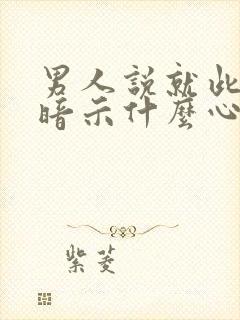 男人說就此
暗示什麼心
紫菱